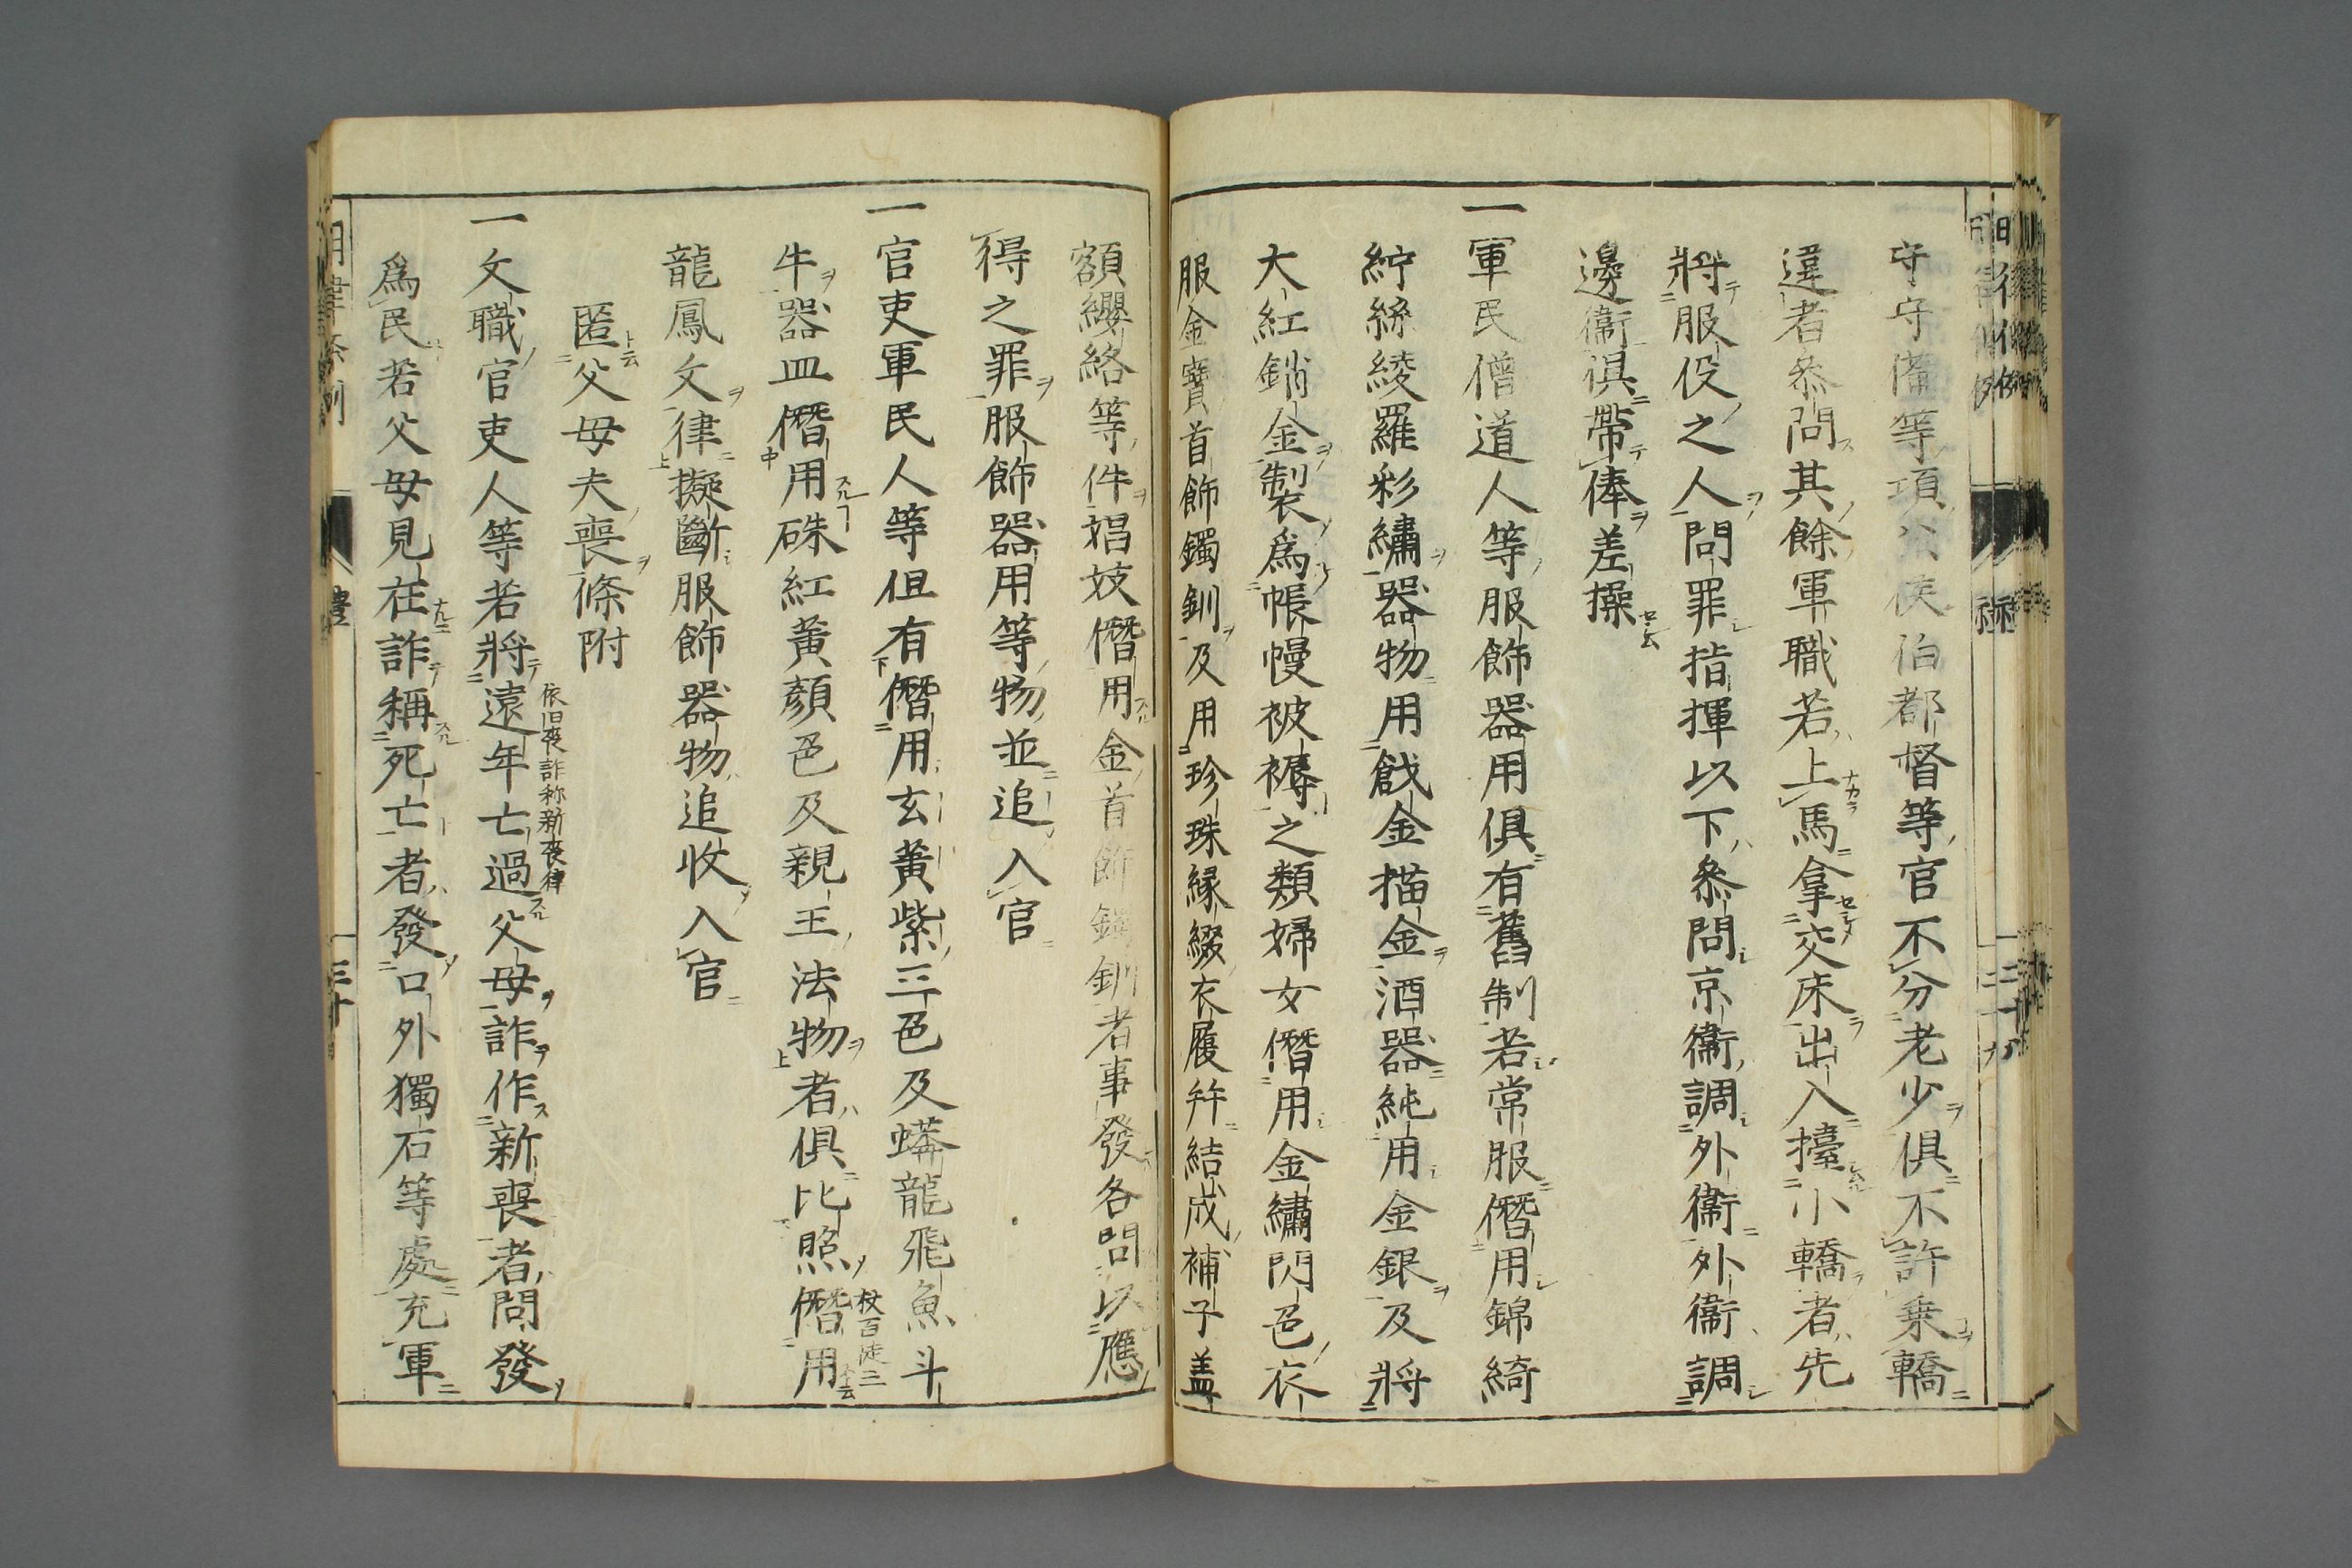 守守備等項公侯伯都督等官不分老少俱不許乗轎
違者叅問其餘軍職若上馬拿交床出入擡小轎者先
將服役之人問罪指揮以下叅問京衞調外衞外衞調
邊衞俱帶俸差操
一軍民僧道人等服飾器用俱有舊制若常服僭用錦綺
紵絲綾羅彩繡器物用戧金描金酒器純用金銀及將
大紅銷金製爲帳幔被褥之類婦女僭用金繡閃色衣
服金寳首飾鐲釧及用珍珠縁綴衣履幷結成補子盖
額纓絡等件娼妓僭用金首飾鐲釧者事發各問以應
得之罪服飾器用等物並追入官
一官吏軍民人等但有僭用玄黃紫三色及蟒龍飛魚斗
牛器皿僭用硃紅黃顏色及親王法物者俱比照僭用
杖百徒三
龍鳳文律擬斷服飾器物追收入官
匿父母夫喪條附
一文職官吏人等若將遠年亡過父母詐作新喪者問發
依旧喪詐称新喪律
爲民若父母見在詐稱死亡者發口外獨石等處充軍
明律条例
禮
三十